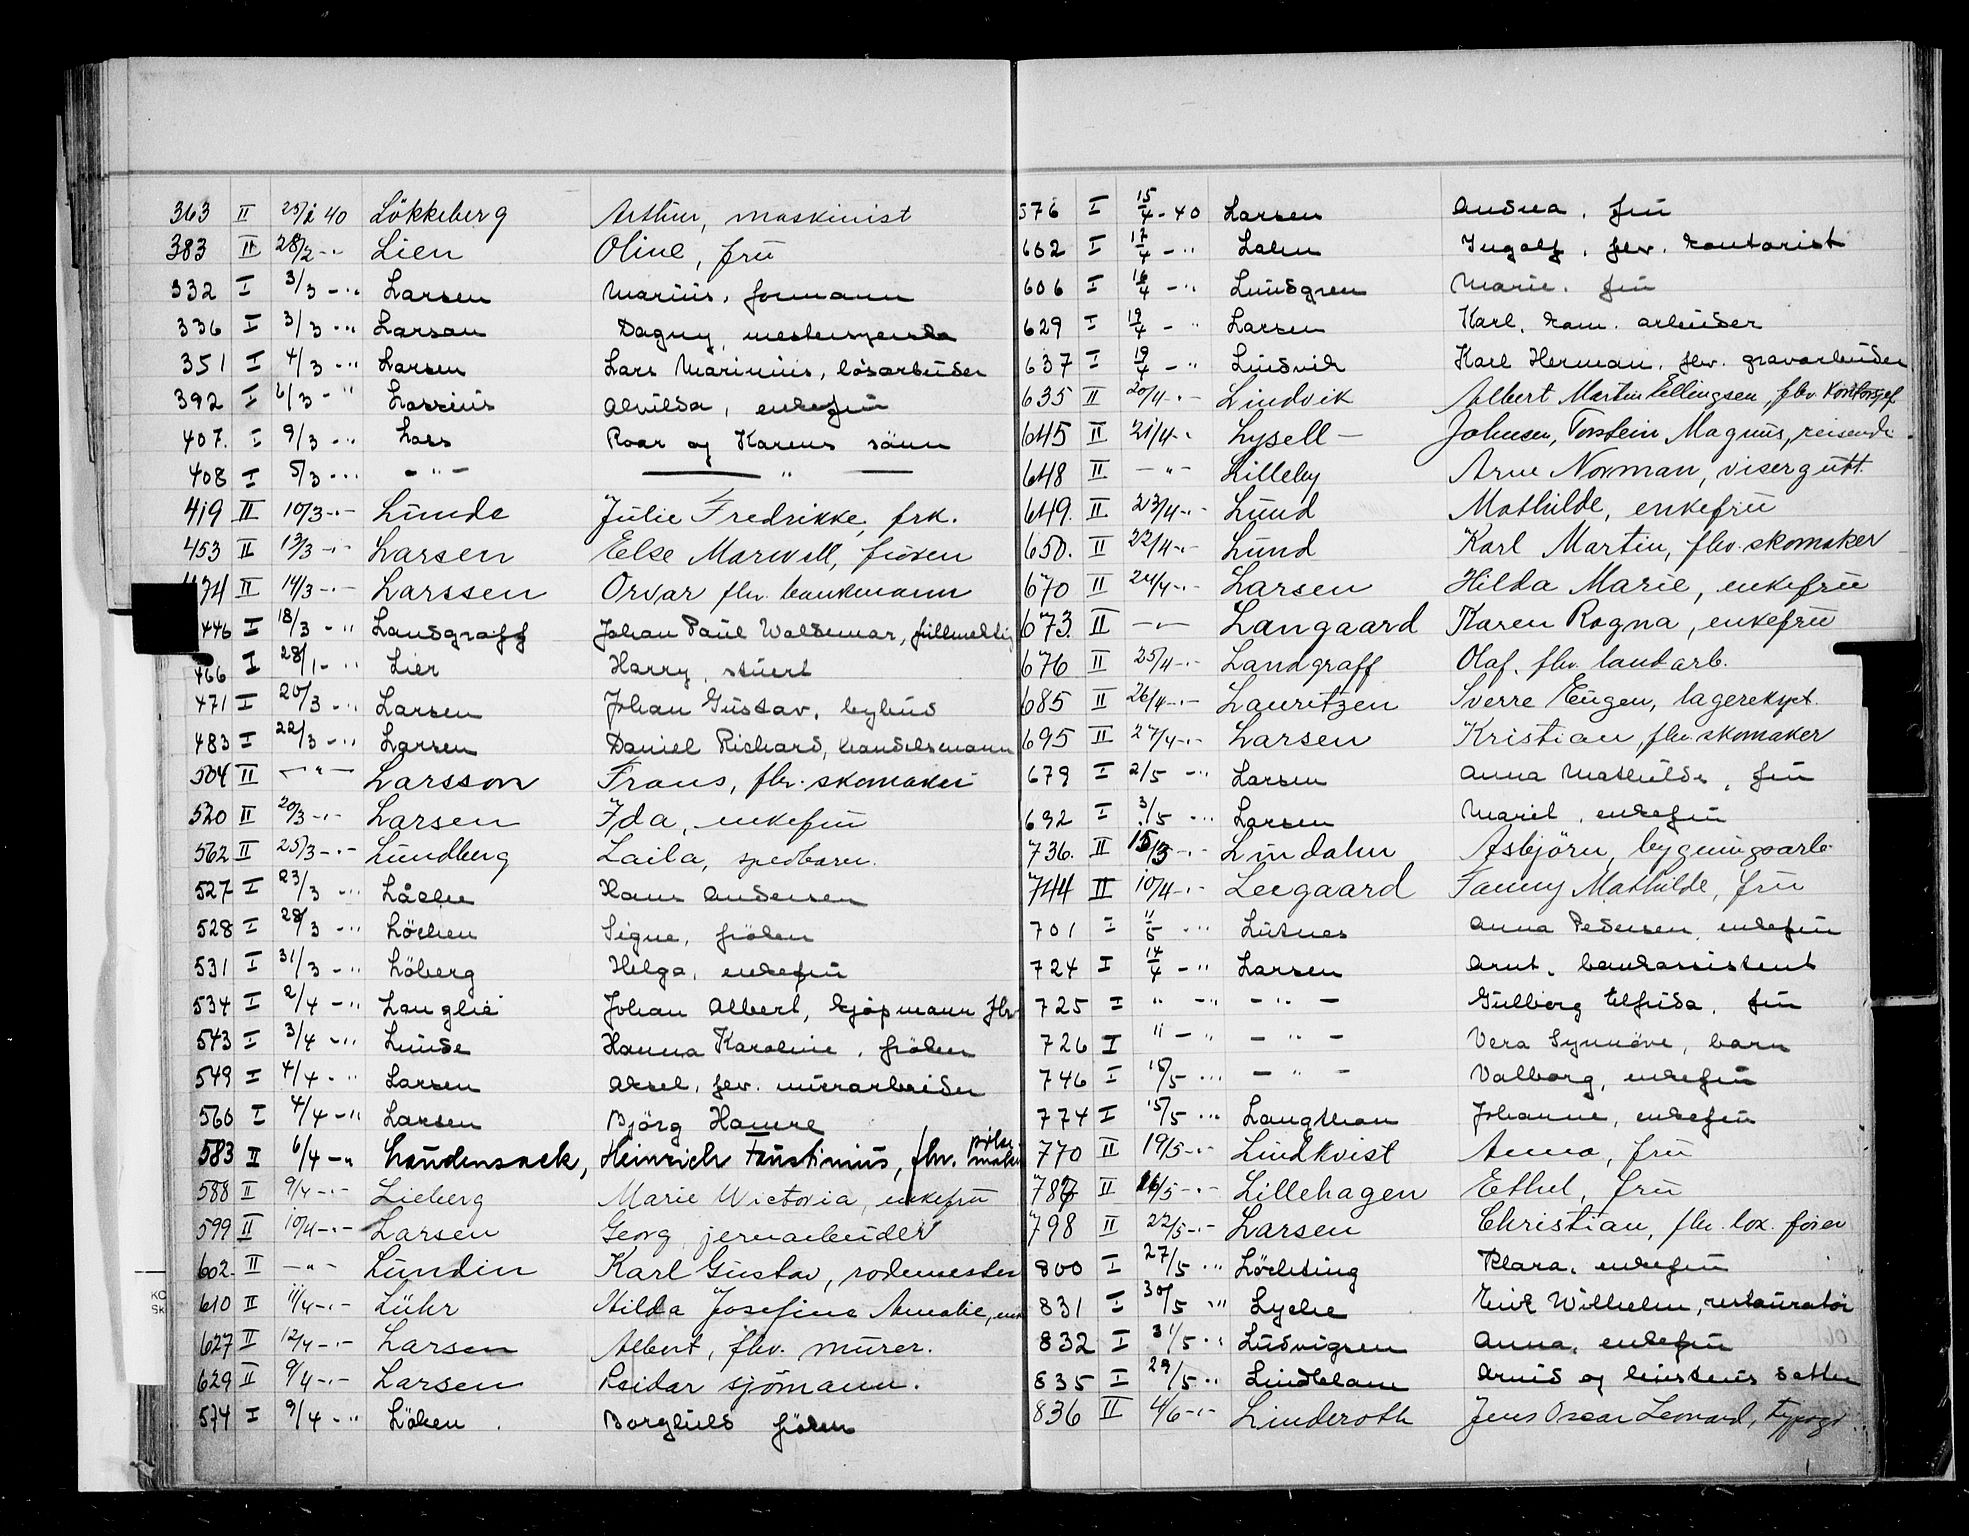 363 II 25/2 40 Lökkeberg Arthur, maskinist
383 II 28/2 -"- Lien Oline, frü
332 I 3/3 -"- Larsen Marius, formann
336 I 3/3 -"- Larsen Dagny,
351 I 4/3 -"- Larsen Lars Marinius, løsarbeider
392 I 6/3 -"- Lassius Alvilda, enkefrü
407. I 9/3 -"- Lars Roar og Karens sönn
408 I 5/3 -"- - " - — " —
419 II 10/3 -"- Lunde Julie Fredrikke, frk.
453 II 13/3 -"- Larsen Else Marwell, fröken
474 II 14/3 -"- Larssen Orvar fhv. bankmann
446 I 18/3 -"- Landgraff Johan Paul Waldemar, füllmektig
466 I 28/1 -"- Lier Harry, stuert
471 I 20/3 -"- Larsen Johan Gustav, bybud
483 I 22/3 -"- Larsen Daniel Richard, handelsmann
504 II - " - Larsson Frans, fhv. skomaker
520 II 20/3 -"- Larsen Ida, enkefrü
562 II 25/3 -"- Lundberg Laila, spedbarn.
527 I 23/3 -"- Låche Hans Andersen
528 I 28/3 -"- Löchen Signe, fröken
531 I 31/3 -"- Löberg Helga, enkefrü
534 I 2/4 -"- Langlie Johan Albert, kjöpmann fhv
543 I 3/4 -"- Lunde Hanna Karoline, fröken
549 I 4/4 -"- Larsen Aksel, fhv. murarbeider
560 I 4/4 -"- Larsen Björg Hamre
583 II 6/4 -"- Laudensack, Heinrich Faustinius, fhv. pölsemaker
588 II 9/4 -"- Lieberg Marie Victoria, enkefrü
599 II 10/4 -"- Larsen Georg, jernarbeider
602. II - " - Lundin Karl Gustav, rodemester
610 II 11/4 -"- Lühr Hilda Josefine Amalie, enk
627 II 12/4 -"- Larsen Albert, fhv. murer.
629 II 9/4 -"- Larsen Reidar sjömann.
574 I 9/4 -"- Löken Borghild fröken
576 I 15/4 - 40 Larsen Andrea, frü
602 I 17/4 -"- Lahn Ingolf, fhv. kontorist
606 I 16/4 -"- Lundgren Marie, frü
629 I 19/4 -"- Larsen Karl, kom. arbeider
637 I 19/4 -"- Lindvik Karl Herman, fhv. gravarbeider
635 II 20/4 -"- Lindvik Albert Martin Ellingsen, fhv. Kontorsjef
645 II 21/4 -"- Lysell - Johnsen, Torstein Magnus, reisende.
648 II - " - Lilleby Arne Norman, visergutt.
649. II 23/4 -"- Lund Mathilde, enkefrü
650. II 22/4 -"- Lund Karl Martin, fhv. skomaker
670 II 24/4 -"- Larsen Hilda Marie, enkefrü
673. II - " - Langaard Karen Ragna, enkefrü
676 II 25/4 -"- Landgraff Olaf, fhv. landarb.
685 II 26/4 -"- Lauritzen Sverre Eugen, lagerekspt.
695 II 27/4 -"- Larsen Kristian, fhv. skomaker
679 I 2/5 -"- Larsen Anna Mathilde, frü
692 I 3/5 -"- Larsen Marie, enkefrü
736. II 15/3 -"- Lindahn Asbjörn, bygningsarb.
744 II 10/4 -"- Leegaard Fanny Mathilde, frü
701 I 11/5 -"- Lutnes Anna Pedersen, enkefrü
724 I 14/4 -"- Larsen Arnt, bankassistent
725 I " -"- - " - Gulborg Elfrida, frü
726 I " - " - " - Vera Synnöve, barn
746 I 15/5 -"- - " - Valborg, enkefrü
774 I 15/5 -"- Langthon Johanne, enkefrü
770 II 19/5 -"- Lindkvist Anna, frü
787 II 16/5 -"- Lillehagen Ethel, frü
798 II 22/5 -"- Larsen Christian, fhv. lok. förer
800 I 27/5 -"- Löchting Klara, enkefrü
831 I 30/5 -"- Lyche Eirik Wilhelm, restauratör
832 I 31/5 -"- Ludvigsen Anna, enkefrü
835 I 29/5 -"- Lindblom Arvid og datter
836 II 4/6 -"- Linderoth Jens Oscar Leonard, typogr.